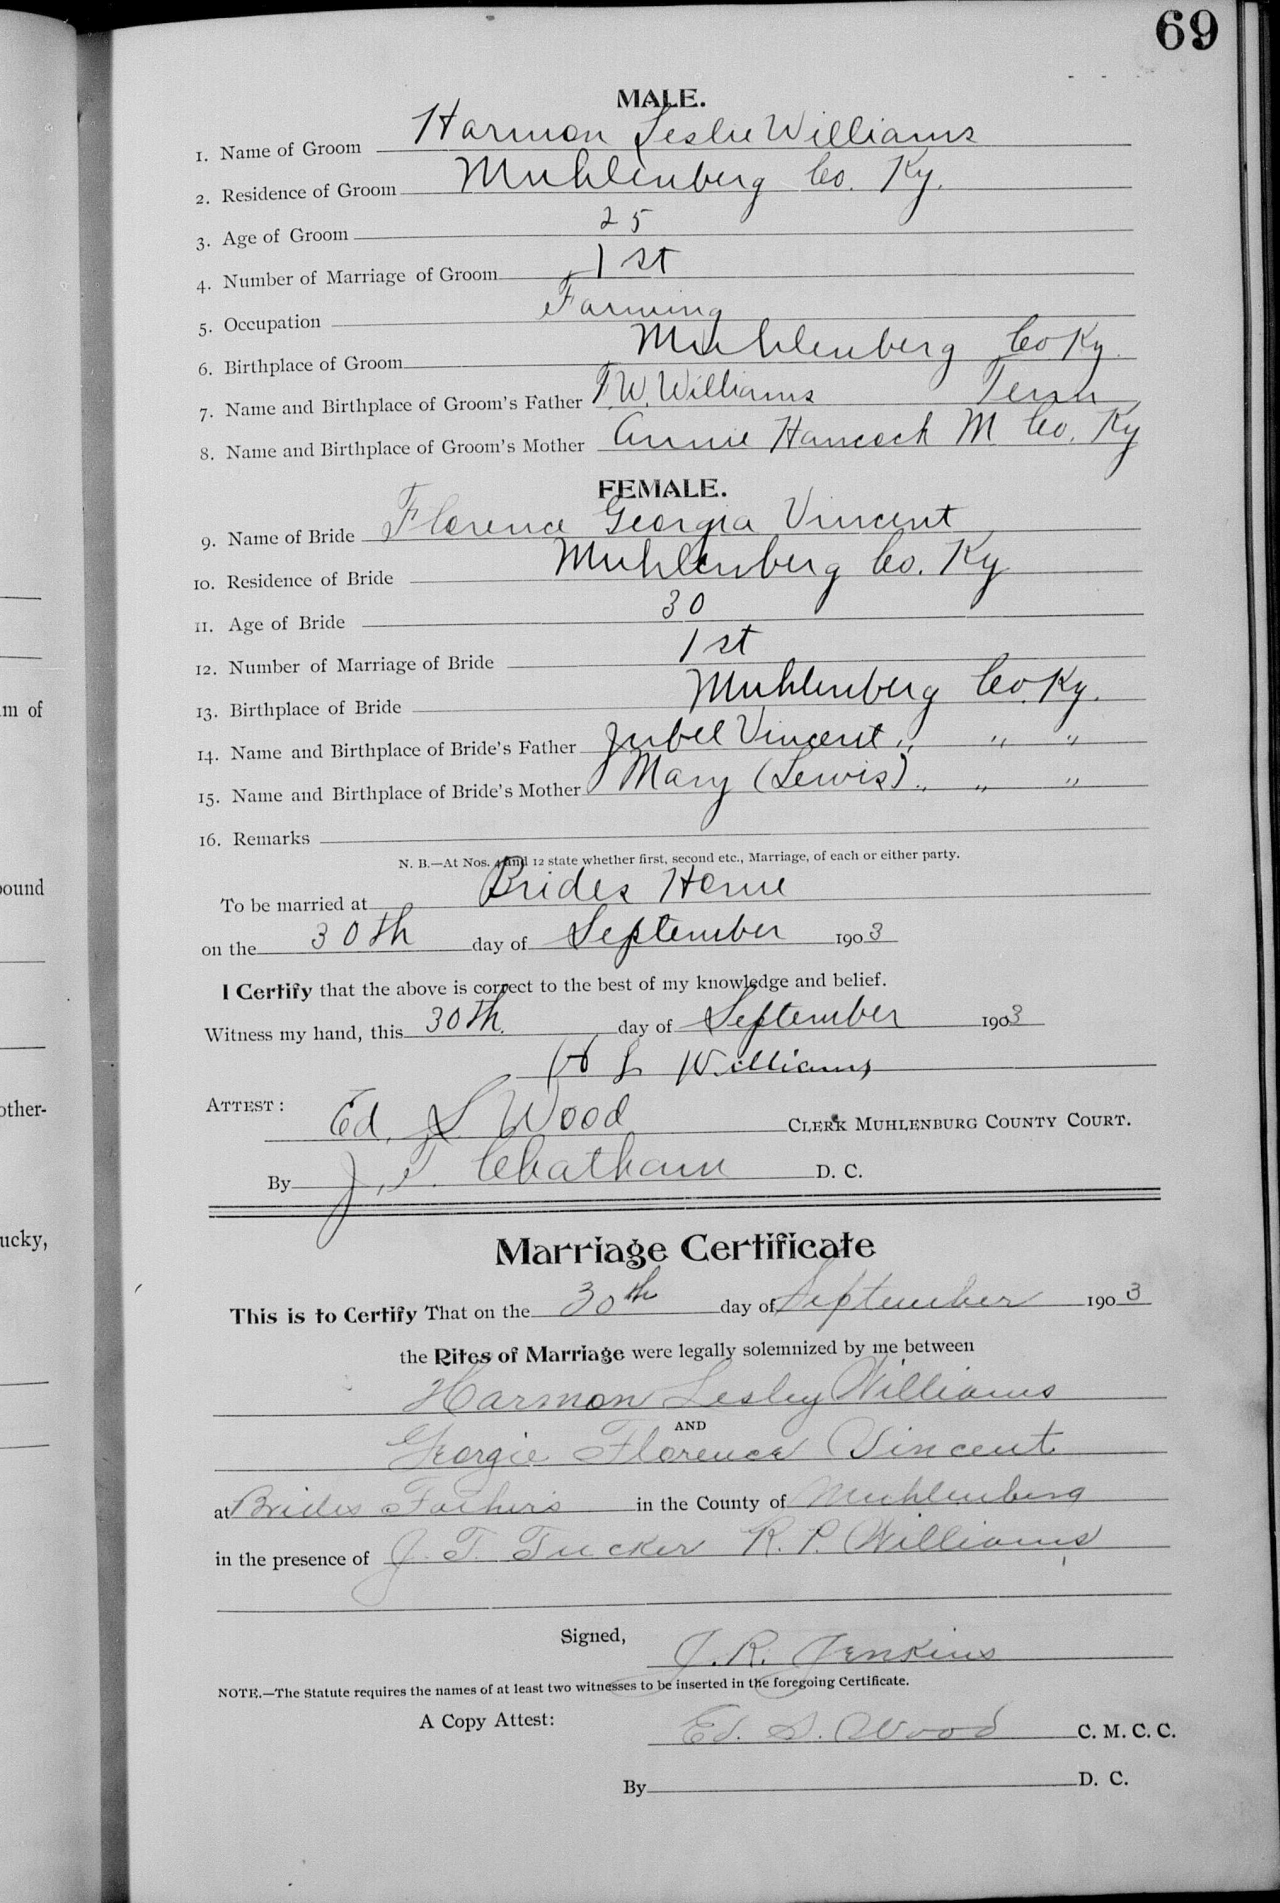 69
MALE.
1. Name of Groom Harmon Leslie Williams
2. Residence of Groom Muhlenberg Co. Ky.
3. Age of Groom 25
4. Number of Marriage of Groom 1st
5. Occupation Farming
6. Birthplace of Groom Muhlenberg Co Ky.
7. Name and Birthplace of Groom's Father T.W. Williams Tenn
8. Name and Birthplace of Groom's Mother Annie Hancock M Co. Ky
FEMALE.
9. Name of Bride Florence Georgia Vincent
10. Residence of Bride Muhlenberg Co. Ky
11. Age of Bride 30
12. Number of Marriage of Bride 1st
13. Birthplace of Bride Muhlenberg Co. Ky.
14. Name and Birthplace of Bride's Father Jubel Vincent " " "
15. Name and Birthplace of Bride's Mother Mary (Lewis) " " "
16. Remarks
N. B.—At Nos. 4 and 12 state whether first, second etc., Marriage, of each or either party.
To be married at Brides Home
on the 30th day of September 1903
I Certify that the above is correct to the best of my knowledge and belief.
Witness my hand, this 30th. day of September 1903
H L Williams
ATTEST: Ed. S. Wood CLERK MUHLENBURG COUNTY COURT.
By J. T. Chatham D. C.
Marriage Certificate
This is to Certify That on the 30th day of September 1903
the Rites of Marriage were legally solemnized by me between
Harmon Lesley Williams
AND
Georgie Florence Vincent
at Brides Father's in the County of Muhlenberg
in the presence of J. T. Tucker R. P. Williams
Signed, J. R. Jenkins
NOTE.—The Statute requires the names of at least two witnesses to be inserted in the foregoing Certificate.
A Copy Attest: Ed. S. Wood C. M. C. C.
By D. C.